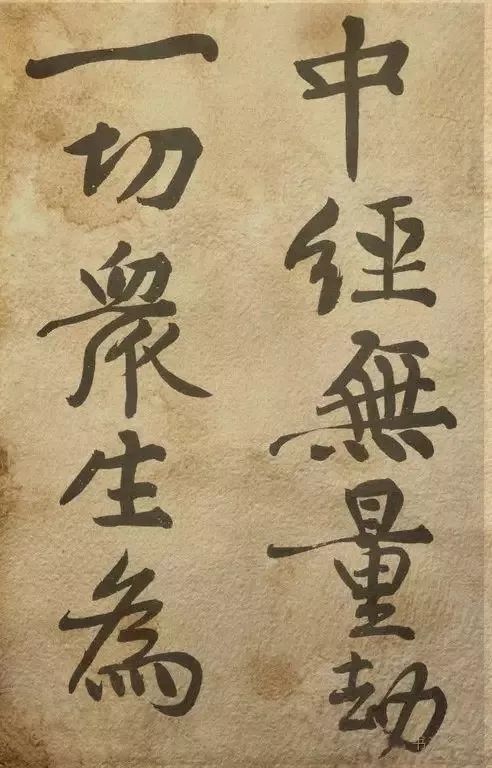 中經無量劫
一切衆生為
书